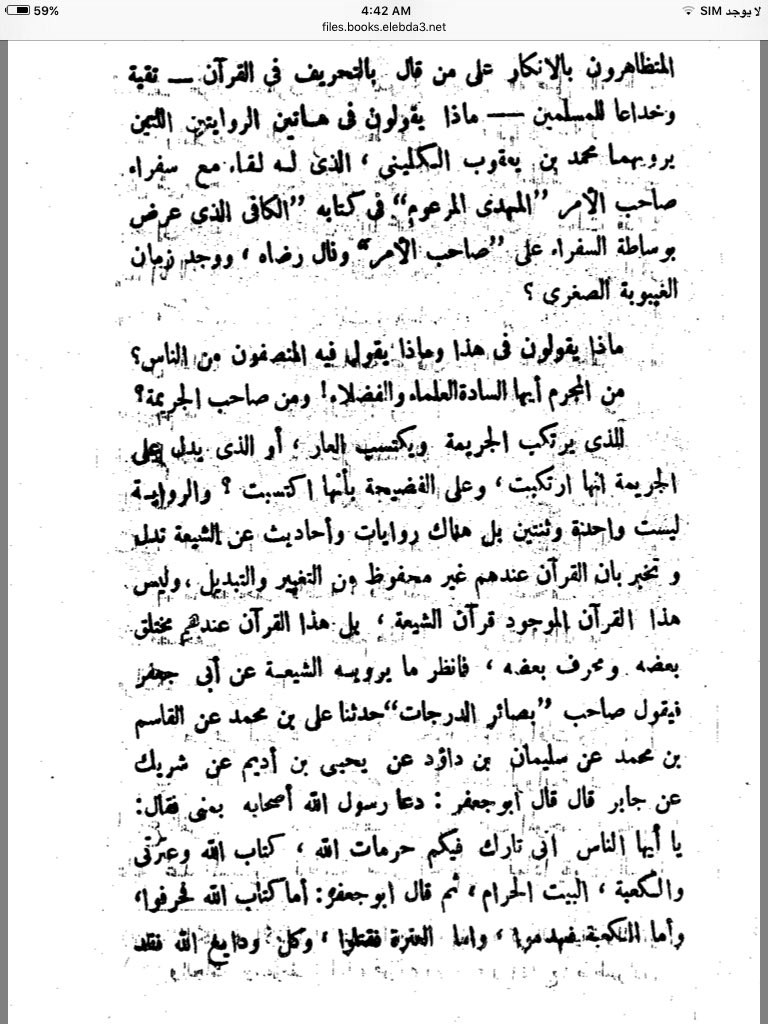 59%
4:42 AM
لا يوجد SIM
files.books.elebda3.net
المتظاهرون بالانكار على من قال بالتحريف في القرآن — تقية
وخداعا للمسلمين — ماذا يقولون فى هاتين الروايتين اللتين
يرويهما محمد بن يعقوب الكليني ، الذى له لقاء مع سفراء
صاحب الأمر ”المهدى المزعوم“ في كتابه ”الكافى الذي عرض
بوساطة السفراء على ”صاحب الأمر“ ونال رضاه ، ووجد زمان
الغيبوبة الصغرى ؟
ماذا يقولون فى هذا وماذا يقول فيه المنصفون من الناس؟
من المجرم أيها السادة العلماء والفضلاء! ومن صاحب الجريمة؟
اللذى يرتكب الجريمة ويكتسب العار ، أو الذى يدل على
الجريمة انها ارتكبت ، وعلى الفضيحة بأنها اكتسبت ؟ والرواية
ليست واحدة وثنتين بل هناك روايات وأحاديث عن الشيعة تدل
و تخبر بان القرآن عندهم غير محفوظ من التغيير والتبديل ، وليس
هذا القرآن الموجود قرآن الشيعة ، بل هذا القرآن عندهم مختلق
بعضه ومحرف بعضه ، فانظر ما يرويه الشيعة عن أبى جعفر
فيقول صاحب ”بصائر الدرجات“ حدثنا على بن محمد عن القاسم
بن محمد عن سليمان بن داؤد عن يحيى بن أديم عن شريك
عن جابر قال قال ابوجعفر : دعا رسول الله أصحابه بمنى فقال:
يا أيها الناس انى تارك فيكم حرمات الله ، كتاب الله وعترتى
والكعبة ، البيت الحرام ، ثم قال ابوجعفر: أما كتاب الله فحرفوا،
وأما الكعبة فهدموا ، واما العترة فقتلوا ، وكل ودايع الله فقد